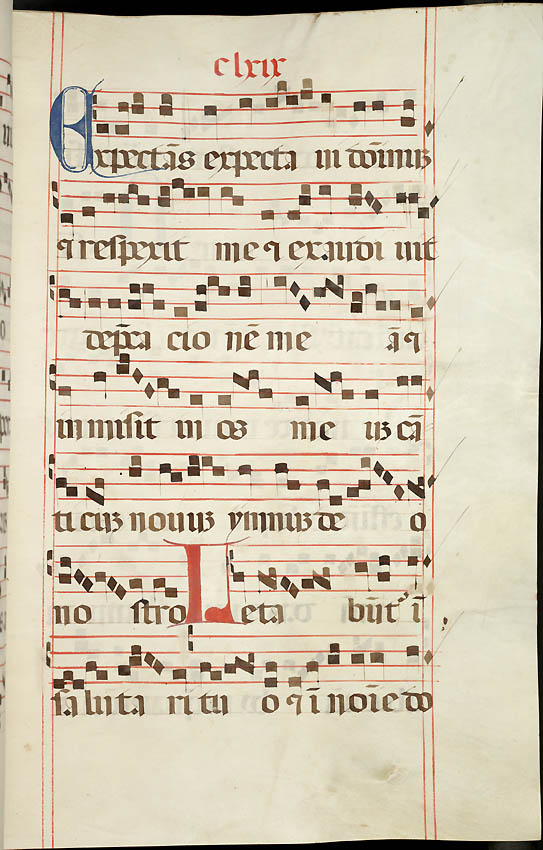 clxix
Expectãs expecta ui dom̃inuz
⁊ respexit me ⁊ exaudi uit
dep̃ca cio nẽ me ã ⁊
inmisit in os me uz cã
ti cuz nouuz ymnuz de o
no stro Leta bũt² ĩ
salutari tu o ⁊ ĩ noĩe do